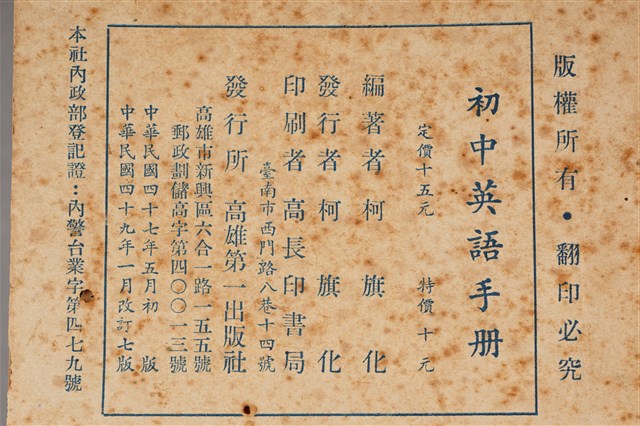 版權所有•翻印必究
初中英語手册
定價十五元 特價十元
編著者柯旗化
發行者柯旗化
印刷者高長印書局
臺南市西門路八巷十四號
發行所高雄第一出版社
高雄市新興區六合一路一五五號
郵政劃儲高字第四〇〇一三號
中華民國四十七年五月初版
中華民國四十九年一月改訂七版
本社內政部登記證：內警台業字第四七九號